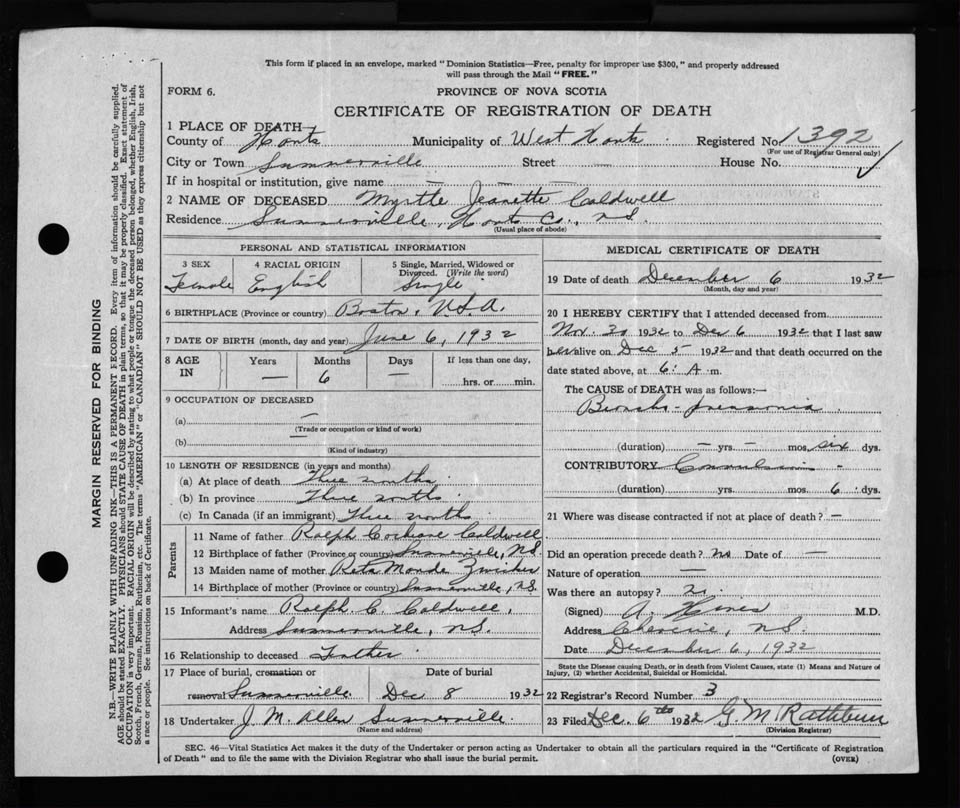 This form if placed in an envelope, marked "Dominion Statistics—Free, penalty for improper use $300," and properly addressed
will pass through the Mail "FREE."
FORM 6.
PROVINCE OF NOVA SCOTIA
CERTIFICATE OF REGISTRATION OF DEATH
1 PLACE OF DEATH—
County of Hants Municipality of West Hants Registered No. 1392
(For use of Registrar General only)
City or Town Summerville Street House No.
If in hospital or institution, give name
2 NAME OF DECEASED Myrtle Jeanette Caldwell
Residence Summerville, Hants Co., N.S.
(Usual place of abode)
PERSONAL AND STATISTICAL INFORMATION
3 SEX 4 RACIAL ORIGIN 5 Single, Married, Widowed or
Divorced. (Write the word)
Female English Single
6 BIRTHPLACE (Province or country) Boston, U.S.A.
7 DATE OF BIRTH (month, day and year) June 6, 1932
8 AGE IN Years Months Days If less than one day,
— 6 — hrs. or min.
9 OCCUPATION OF DECEASED
(a) —
(Trade or occupation or kind of work)
(b) —
(Kind of industry)
10 LENGTH OF RESIDENCE (in years and months)
(a) At place of death Three months
(b) In province Three months
(c) In Canada (if an immigrant) Three months
Parents
11 Name of father Ralph Cochrane Caldwell
12 Birthplace of father (Province or country) Summerville, N.S.
13 Maiden name of mother Reta Maude Zwicker
14 Birthplace of mother (Province or Country) Summerville, N.S.
15 Informant's name Ralph C. Caldwell,
Address Summerville, N.S.
16 Relationship to deceased Father
17 Place of burial, cremation or Date of burial
removal Summerville Dec 8 1932
18 Undertaker J. M. Allen Summerville.
(Name and address)
MEDICAL CERTIFICATE OF DEATH
19 Date of death December 6 1932
(Month, day and year)
20 I HEREBY CERTIFY that I attended deceased from
Nov. 30 1932 to Dec 6 1932 that I last saw
her alive on Dec 5 1932 and that death occurred on the
date stated above, at 6: A m.
The CAUSE of DEATH was as follows:—
Broncho-pneumonia
(duration) — yrs. — mos. six dys.
CONTRIBUTORY Convulsions
(duration) yrs. mos. 6 dys.
21 Where was disease contracted if not at place of death? —
Did an operation precede death? no Date of —
Nature of operation —
Was there an autopsy? no
(Signed) A. Hines M.D.
Address Cheverie, N.S.
Date December 6, 1932
State the Disease causing Death, or in death from Violent Causes, state (1) Means and Nature of
Injury, (2) whether Accidental, Suicidal or Homicidal.
22 Registrar's Record Number 3
23 Filed Dec. 6th 1932 G. M. Rathbun
(Division Registrar)
SEC. 46—Vital Statistics Act makes it the duty of the Undertaker or person acting as Undertaker to obtain all the particulars required in the "Certificate of Registration
of Death" and to file the same with the Division Registrar who shall issue the burial permit. (OVER)
MARGIN RESERVED FOR BINDING
N.B.—WRITE PLAINLY WITH UNFADING INK—THIS IS A PERMANENT RECORD. Every item of information should be carefully supplied.
AGE should be stated EXACTLY. PHYSICIANS should STATE CAUSE OF DEATH in plain terms, so that it may be properly classified. Exact statement of
OCCUPATION is very important. RACIAL ORIGIN will be described by stating to what people or tongue the deceased person belonged, whether English, Irish,
Scotch, French, German, Russian, Ruthenian, etc. The terms "AMERICAN" or "CANADIAN" SHOULD NOT BE USED as they express citizenship but not
a race or people. See instructions on back of Certificate.